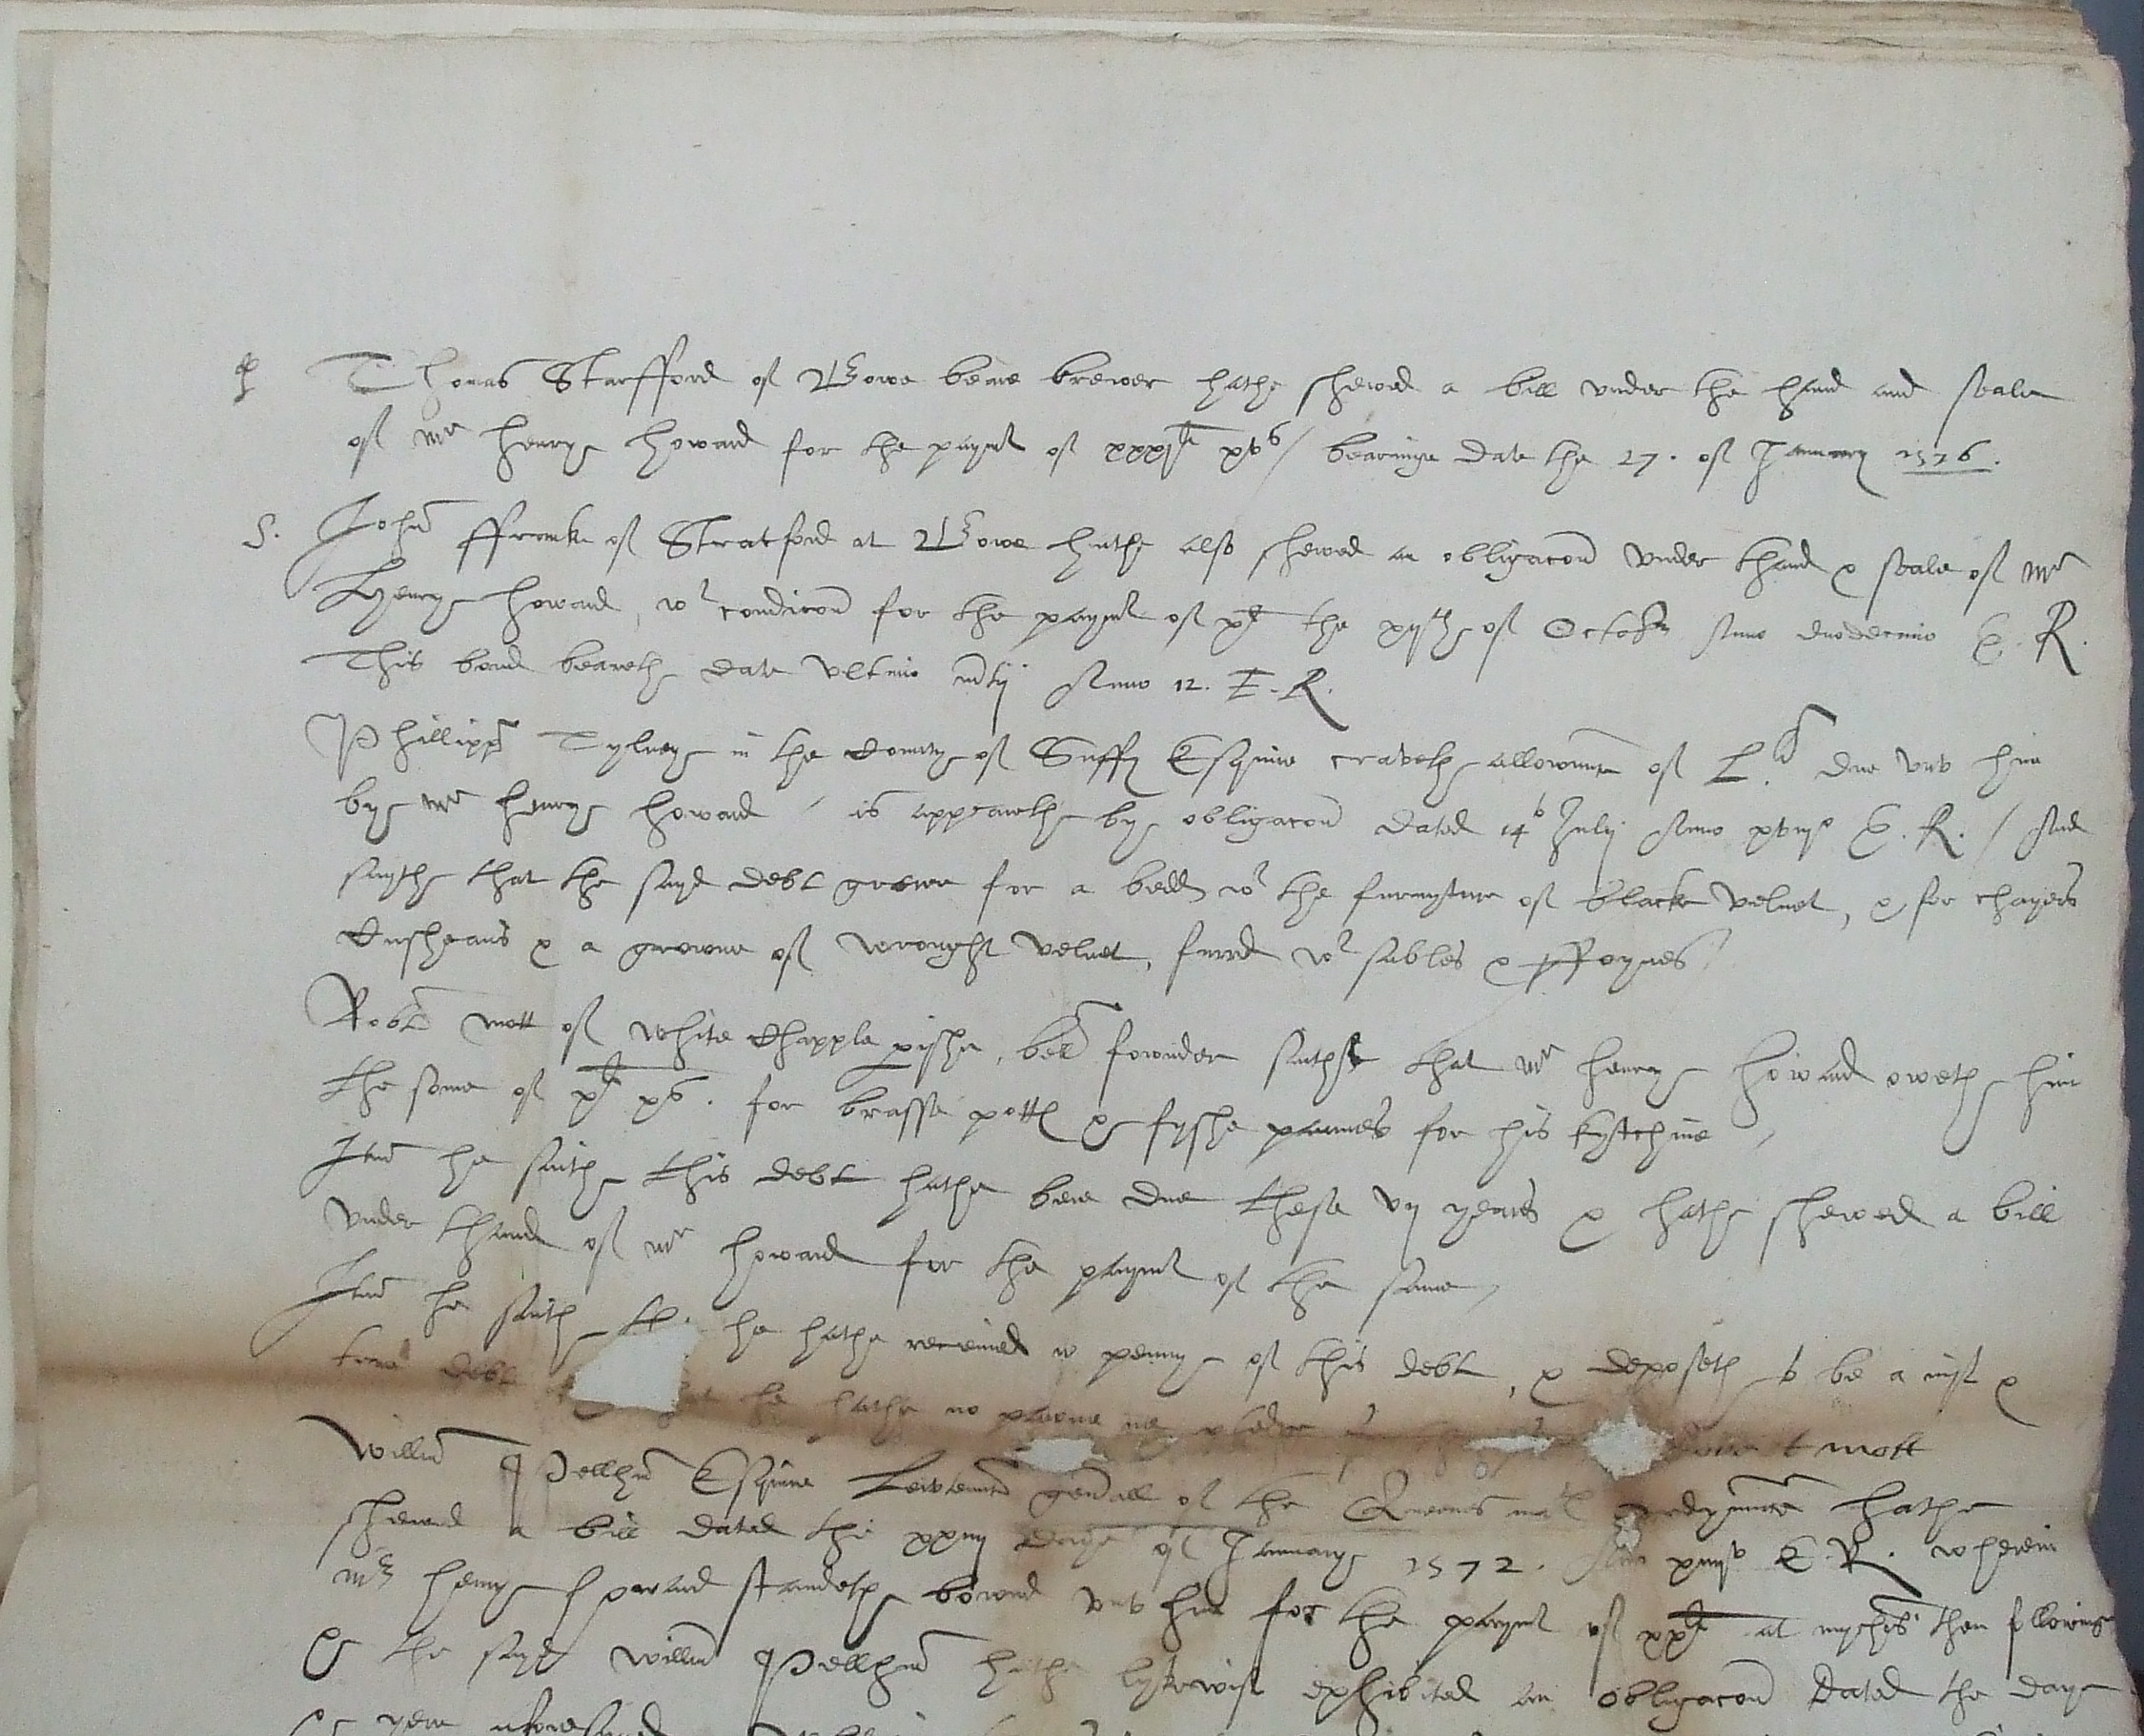 Thomas Starfford of Bowe beare brewer hathe shewed a bill vnder the hand and seale
of Mr henrye howard for the paymt of xxxjli xvs / bearinge date the 27. of January 1576.
S. John ffranke of Stratford at Bowe hathe also shewed an obligacon vnder thand & seale of Mr
Henrye howard, wt condicon for the paymt of xli the xijth of October Anno duodecimo E. R.
This bond beareth date vltimo Anno 12. E. R.
Phillipp Tylney in the County of Suff Esquire craveth allowance of L. li due vnto him
bye Mr henrye howard / as appearethe bye obligacon dated 14o July Anno xviijo E. R. / And
saythe that the sayd debt growe for a bedd wt the furnyture of blacke velvet, & for chayers
Cusheans & a growne of wrought velvet, furrd wt sables & ffoynes /
Robt mott of white Chapple pishe, bell fownder saithe that Mr henrye howard oweth him
the some of xli xs. for brasse potts & fyshe pannes for his kytchine /
Itm he saith this debt hathe bene due these vij yeares & hathe shewed a bill
vnder thand of Mr howard for the paymt of the same /
Itm he saith he hathe receiued no penny of this debt, & deposeth to be a iust &
trewe debt he hathe no pawne ne pledge mott
Willm Pellhm Esquire Leivtennt genall of the Queenes matis ordynnce hathe
shewed a bill dated the xxiiij daye of January 1572. Ano xiiijo E. R. wherein
Mr henrye howard standethe bownd vnto him for the paymt of xxli at mychs then followinge
& the sayd Willm Pellhm hathe lykewise exhibited an obligacon dated the daye
& yere aforesayd